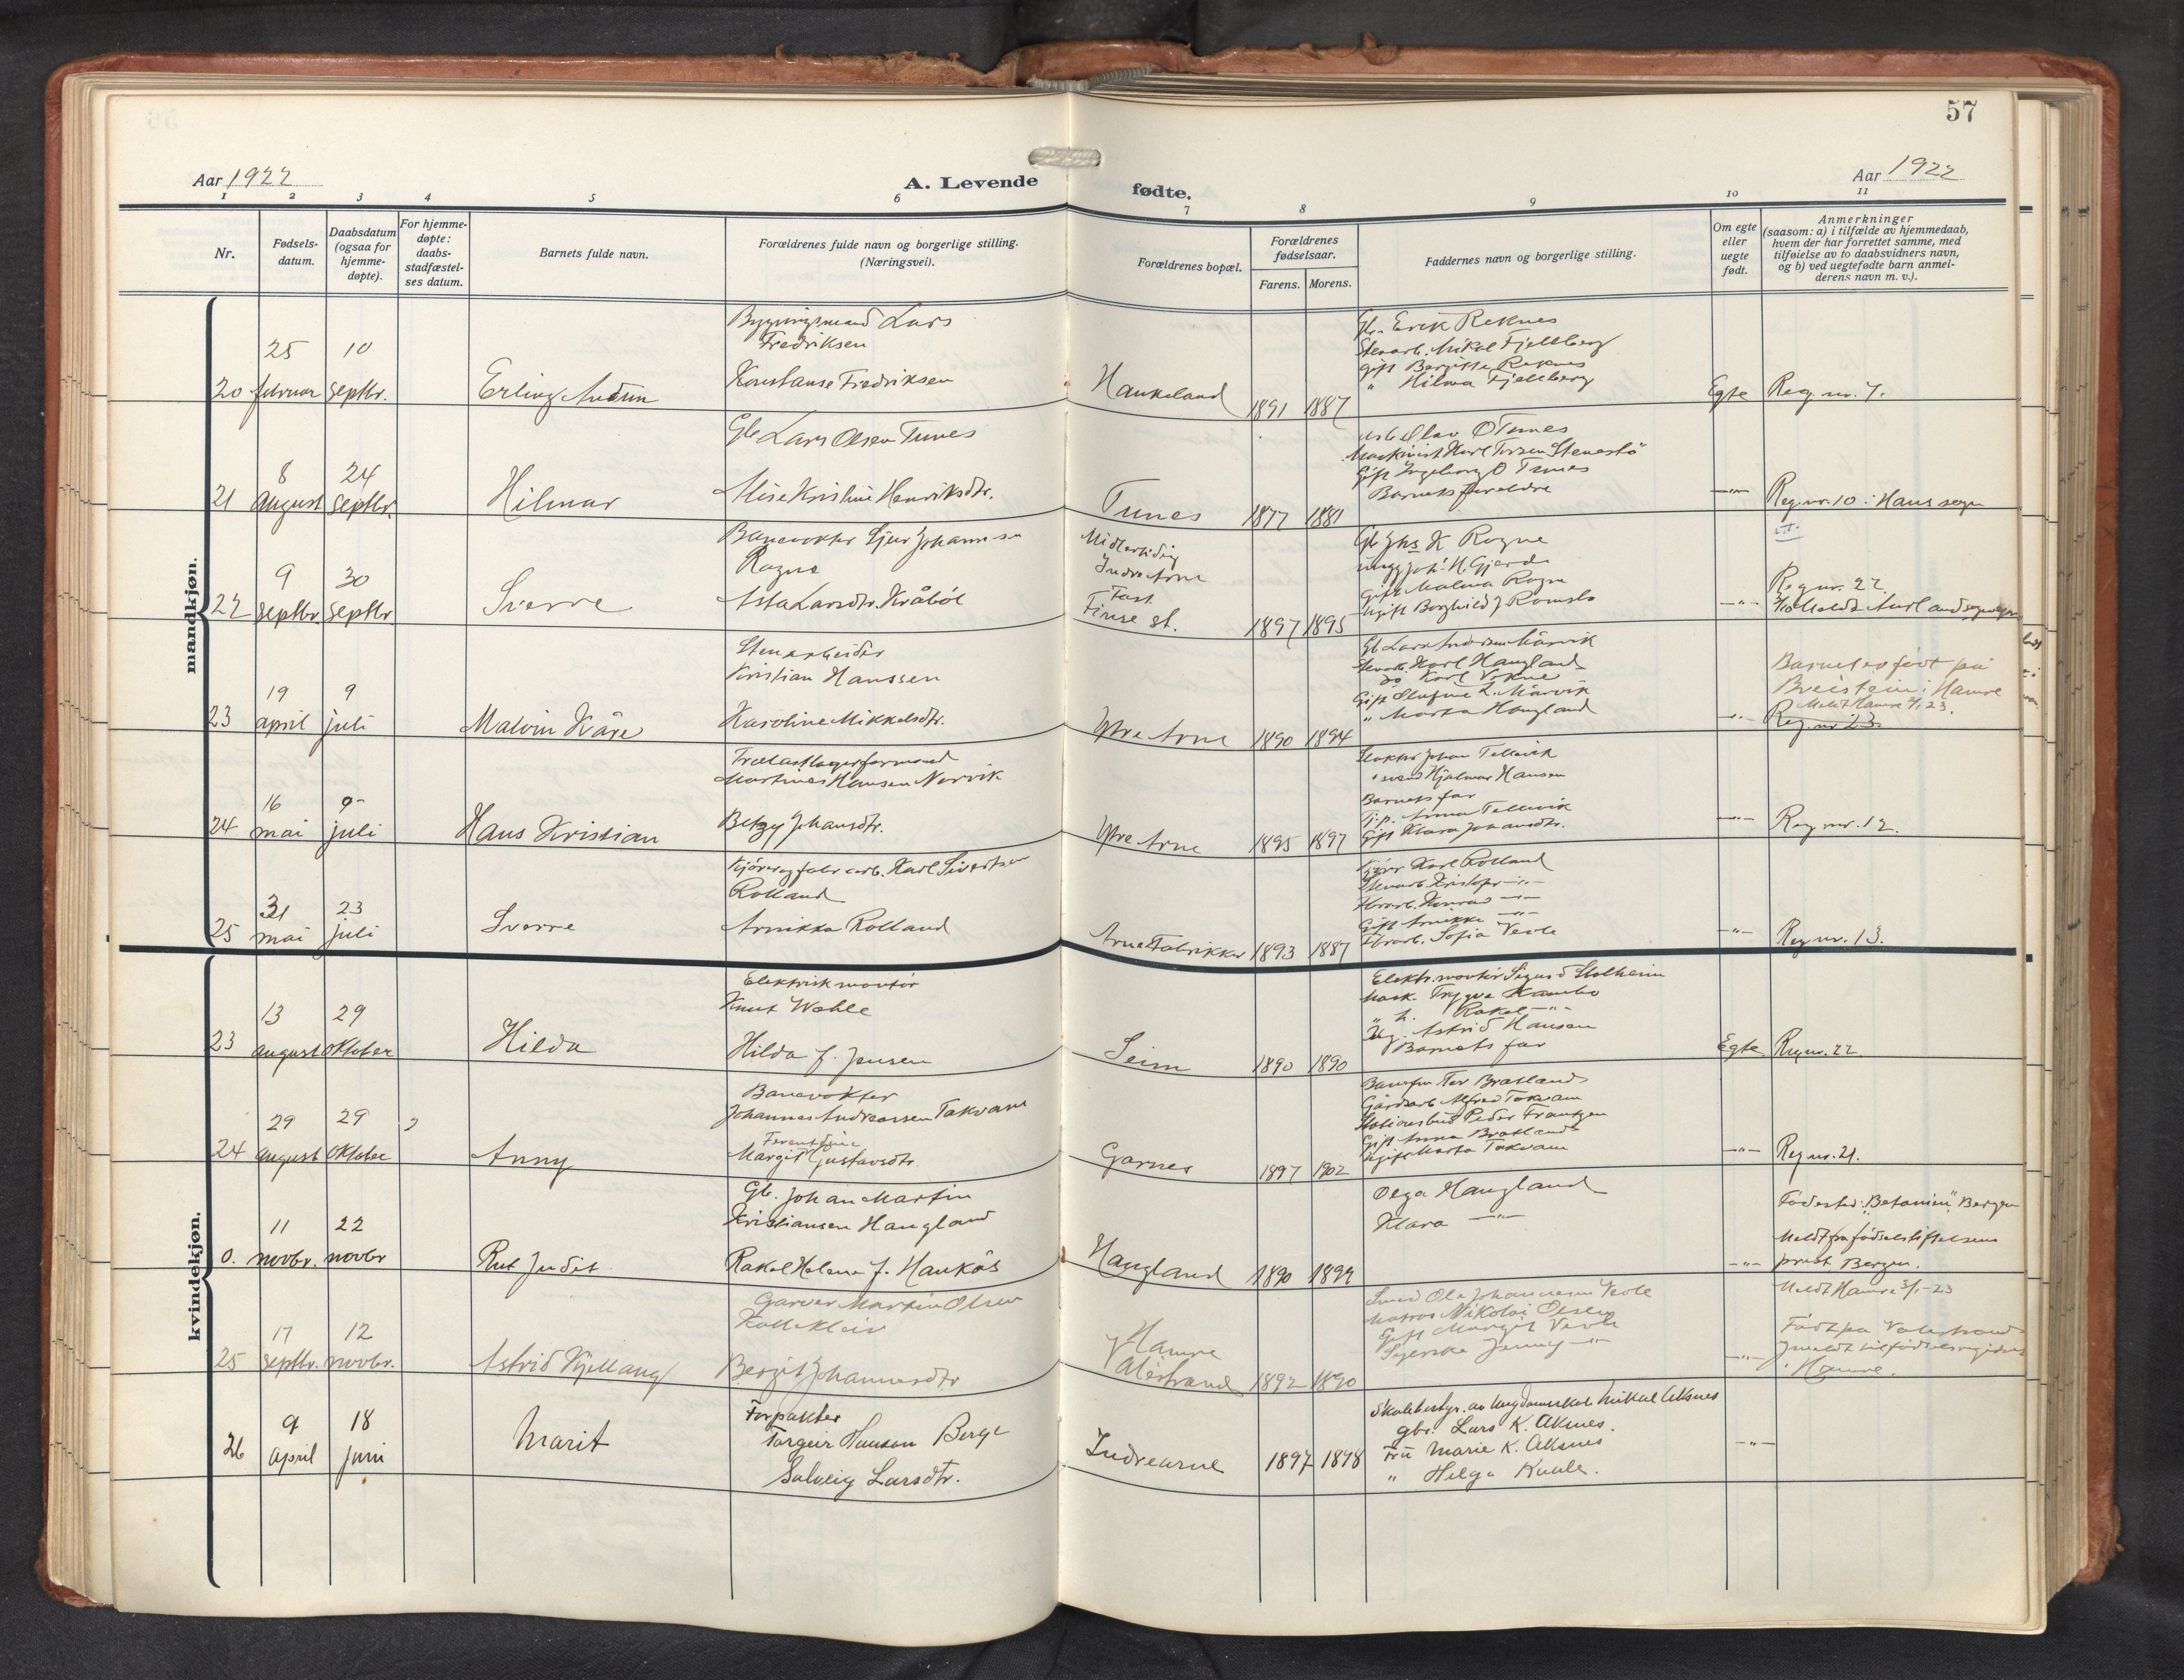 57
Aar 1922
A. Levende
fødte.
Aar 1922
1 2 3 4 5 6
7 8 9 10 11
Nr.
Fødsels-
datum.
Daabsdatum
(ogsaa for
hjemme-
døpte).
For hjemme-
døpte:
daabs-
stadfæstel-
ses datum.
Barnets fulde navn.
Forældrenes fulde navn og borgerlige stilling.
(Næringsvei).
Forældrenes bopæl.
Forældrenes
fødselsaar.
Farens. Morens.
Faddernes navn og borgerlige stilling.
Om egte
eller
uegte
født.
Anmerkninger
(saasom: a) i tilfælde av hjemmedaab,
hvem der har forrettet samme, med
tilføielse av to daabsvidners navn,
og b) ved uegtefødte barn anmel-
derens navn m. v.).
mandkjøn.
20
25
februar
10
septbr.
Erling
Lars
Fredriksen
Konstanse Fredriksen
Haukeland
1891 1887
Gbr. Erik Reknes
Stenarb. Mikal Fjellberg
gift Bergitte Reknes
" Hilma Fjellberg
Egte
Reg. nr. 7.
21
8
august
24
septbr.
Hilmar
Gb Lars Olsen Tunes
Kristine Henriksdtr.
Tunes
1877 1881
Olav O Tunes
Maskinist Karl
Gift Ingeborg O Tunes
Barnets foreldre
-"-
Reg. nr. 10 i Haus sogn
22
9
septbr.
30
septbr
Sverre
Banevokter Sjur Johannsen
Rogne
Asta Larsdtr. Kråbøl
Midlertidig
Indre Arne
Fast
Finse st.
1897 1895
Gb Jhs K Rogne
ungg Joh. H. Gjerde
Gift Malena Rogne
Ugift Borghild J Romslo
-"-
Reg nr. 22.
23
19
april
9
juli
Malvin Kåre
Stenarbeider
Kristian Hanssen
Karoline Mikkelsdtr.
Ytre Arne
1890 1894
Gb Lars Andersen Mårvik
Stenarb Karl Haugland
do Karl Vikne
Gift Olufine L. Mårvik
" Marta Haugland
-"-
Barnet er født på
Breistein i Hamre
Meldt Hamre 3/1 23.
Reg. nr. 23.
24
16
mai
9
juli
Hans Kristian
Trælastlagerformand
Martines Hansen Norvik
Betzy Johansdtr.
Ytre Arne
1895 1897
Johan Tellevik
Hjalmar Hansen
Barnets far
Tjp. Anna Tellevik
Gift Klara Johansdtr.
-"-
Reg nr. 12.
25
31
mai
23
juli
Sverre
Kjører og fabr arb. Karl Sivertsen
Rolland
Arnikka Rolland
Arne Fabrikker
1893 1887
Kjører Karl Rolland
Stenarb. Kristofer -"-
Konrad -"-
Gift Arnikke -"-
Sofia Vevle
-"-
Reg nr. 13.
kvindekjøn.
23
13
august
29
oktober
Hilda
Elektrisk montør
Knut Wahle
Hilda f. Jensen
Seim
1890 1890
Elektr. montør Sigurd Stolheim
Mask. Trygve Kambo
" h. Rakel -"-
Ug. Astrid Hansen
Barnets far
Egte
Reg nr. 22.
24
29
august
29
oktober
Anny
Banevokter
Johannes Andreassen Takvam
Margit Gustavsdtr.
Garnes
1897 1902
Banefm Tor Bratland
Gårdarb Alfred Takvam
Stationsbud Peder Frantzen
Gift Anna Bratland
Ugift Marta Takvam
-"-
Reg nr. 21.
0.
11
novbr.
22
novbr
Rut Judit
Gb. Johan Martin
Kristiansen Haugland
Rakel Helene f. Haukås
Haugland
1890 1899
Olga Haugland
Klara -"-
-"-
Fødested: "Betanien", Bergen
Meldt fra fødselsstiftelsens
prest Bergen.
25
17
septbr.
12
novbr.
Astrid Kjellaug
Garver Martin Olsen
Kalleklev
Bergit Johannesdtr
Hamre
Valestrand
1892 1890
Smed Ola Johannesen Vevle
Matros Nikolai Olsen
Gift Margit Vevle
Syerske Jenny -"-
-"-
Meldt Hamre 3/1-23
Født på Valestrand
i Hamre.
26
9
april
18
juni
Marit
Forpakter
Torgeir Hanson Berge
Solveig Larsdtr.
Indre Arne
1897 1898
Skolebestyr. av Ungdomsskol Mikal Aksnes
gbr. Lars K. Aksnes.
Fru Marie K. Aksnes
" Helga Kvale.
-"-